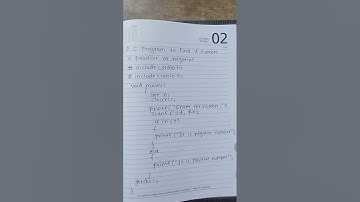 02
C program to find a number
is positive or negative
# include <stdio.h>
# include <conio.h>
void main()
{
int n;
clrscr();
printf("Enter the number");
scanf("%d", &n);
if (n<0)
{
printf("It is negative number");
}
else
{
printf("It is positive number");
}
getch();
}